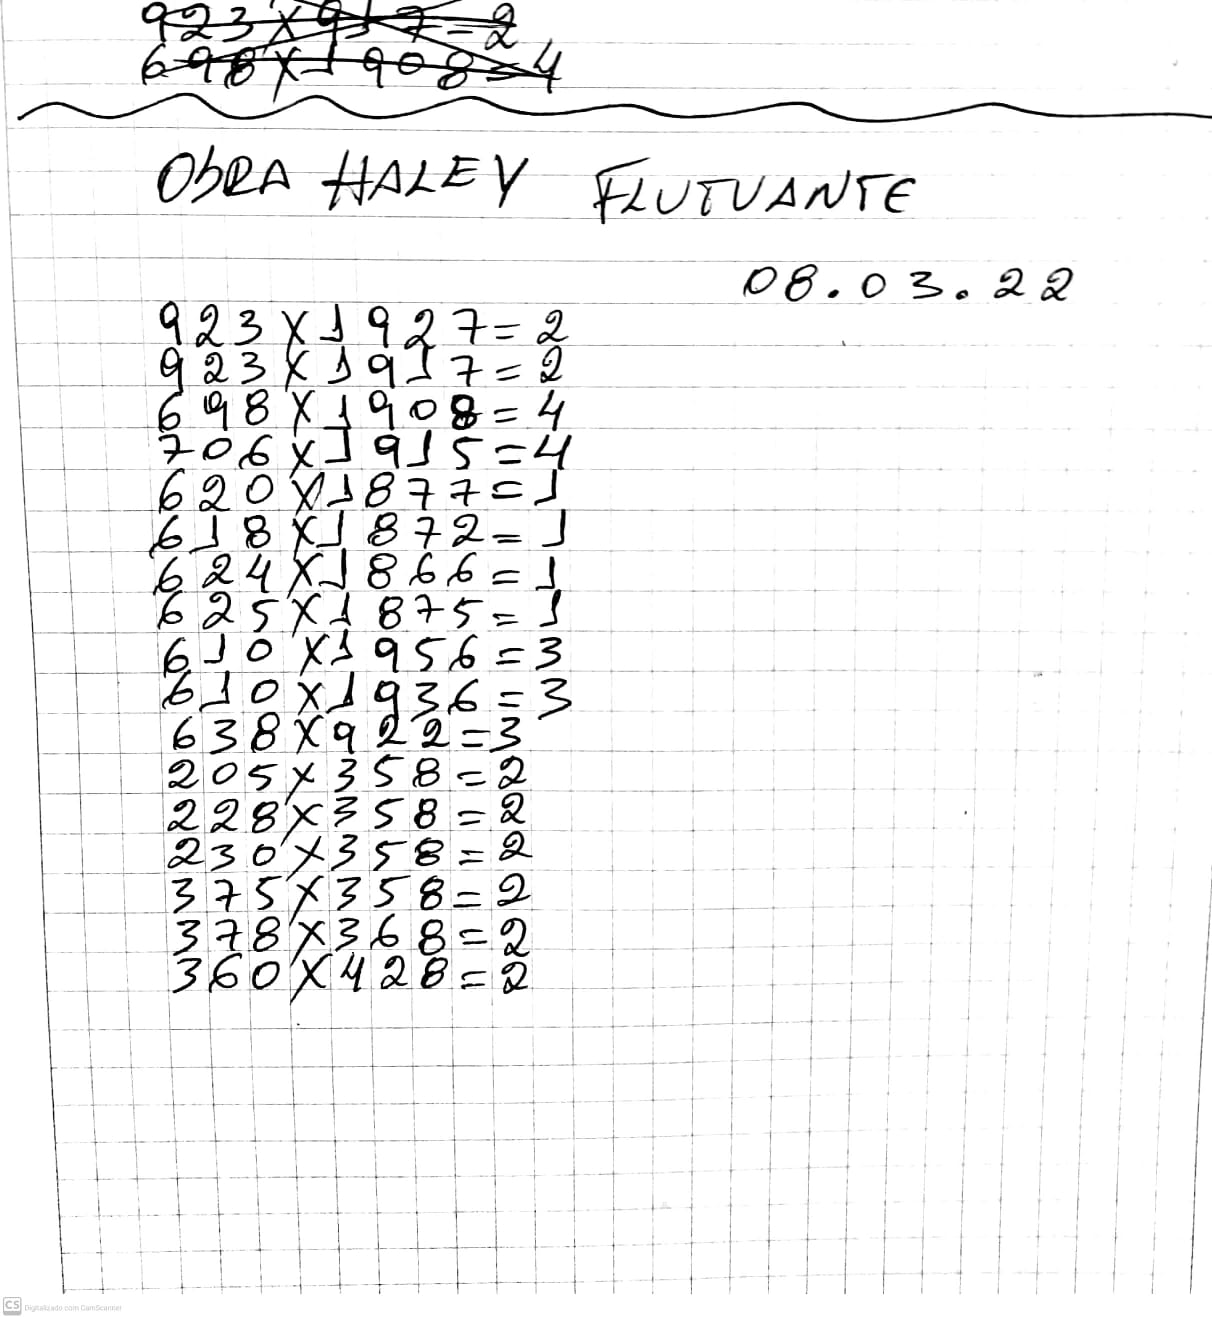 923X917=2
698X1908=4
OBRA HALEY FLUTUANTE
08.03.22
923X1927=2
923X1917=2
698X1908=4
706X1915=4
620X1877=1
618X1872=1
624X1866=1
625X1875=1
610X1956=3
610X1936=3
638X922=3
205X358=2
228X358=2
230X358=2
375X358=2
378X368=2
360X428=2
CS Digitalizado com CamScanner